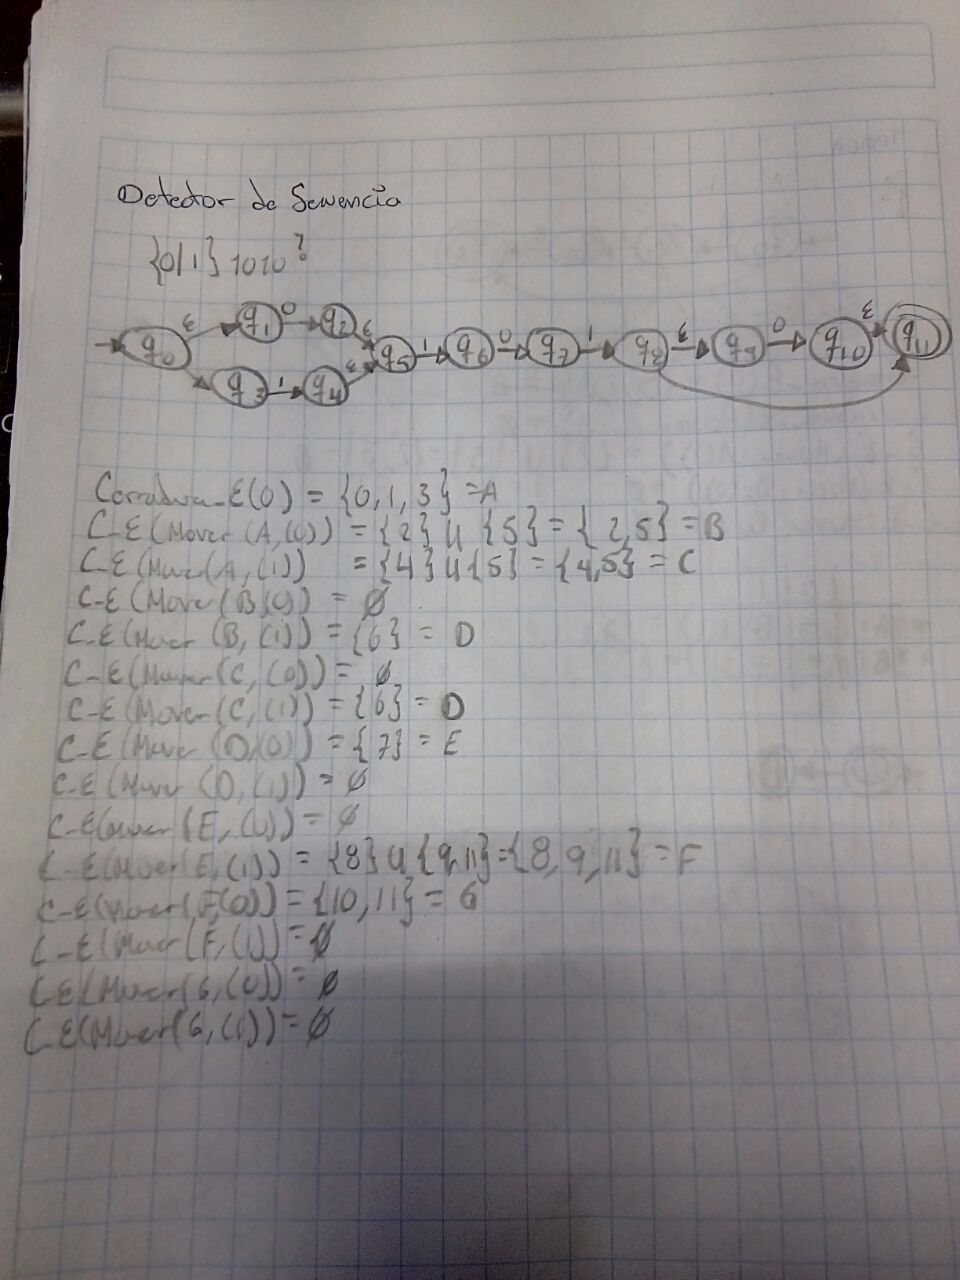 Detector de Secuencia
{0/1} 1010?
q0 ε q1 0 q2 ε q5 1 q6 0 q7 1 q8 ε q9 0 q10 ε q11
q3 1 q4 ε
Cerradura-ε(0) = {0,1,3} = A
C-ε(Mover (A,(0)) = {2} U {5} = {2,5} = B
C-ε(Mover(A,(1)) = {4} U {5} = {4,5} = C
C-ε(Mover(B,(0)) = ∅
C-ε(Mover (B,(1)) = {6} = D
C-ε(Mover(C,(0)) = ∅
C-ε(Mover(C,(1)) = {6} = D
C-ε(Mover (D,(0)) = {7} = E
C-ε(Mover (D,(1)) = ∅
C-ε(Mover(E,(0)) = ∅
C-ε(Mover(E,(1)) = {8} U {9,11} = {8,9,11} = F
C-ε(Mover(F,(0)) = {10,11} = G
C-ε(Mover(F,(1)) = ∅
C-ε(Mover(G,(0)) = ∅
C-ε(Mover(G,(1)) = ∅